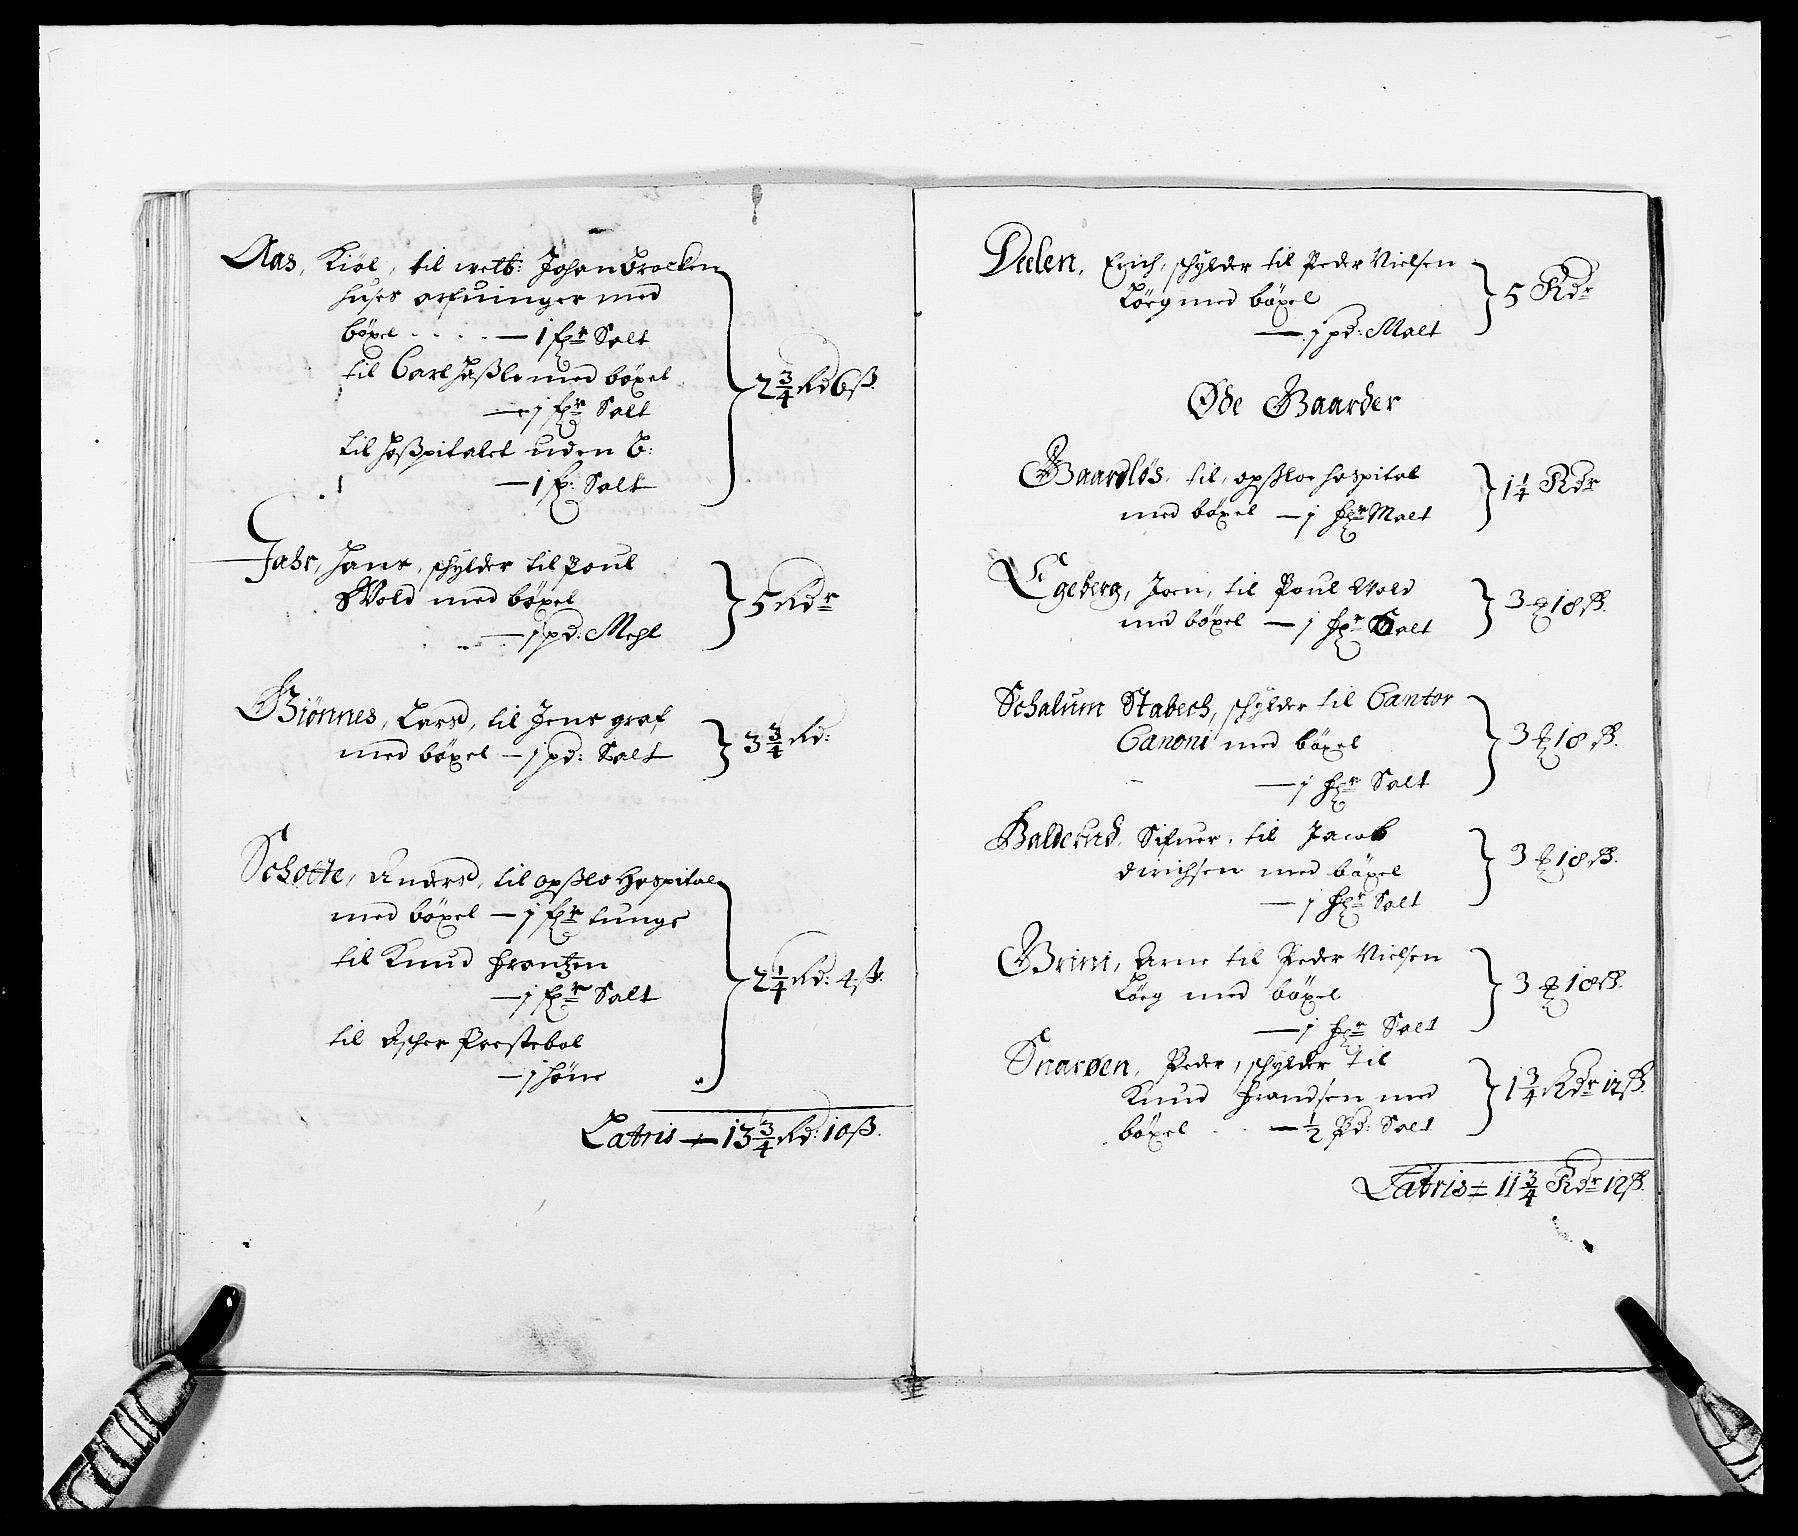 Aas, Kiøl, til welb: Johan Brocken
huses arfuinger med
böxel - - - - — 1 fr Salt
til Carl Haßle med böxel
— 1 fr Salt
til Hoßpitalet uden b:
— 1 f: Salt
2 3/4 Rd 6 ß.
Jahr, Hans, schylder til Poul
Wold med böxel
— 1 pd: Mehl
5 Rdr
Giönnes, Lars, til Jens graf
med böxel — 1 pd: Salt
3 3/4 Rd:
Schotte, Anders, til opßlo Hospital
med böxel — 1 fr tunge
til Knud frantzen
— 1 fr Salt
til Ascher Prestebol
— 1 höne
2 1/4 Rd: 4 ß.
Latris — 13 3/4 Rd: 10 ß.
Delen, Erich, schylder til Peder Nielsen
Lörg med böxel
— 1 pd: Malt
5 Rdr
Øde Gaarder
Gaardløs, til, opßloe hospital
med böxel — 1 fr Malt
1 1/4 Rdr
Egeberg, Joen, til Poul Wold
med böxel — 1 fr Salt
3 18 ß.
Schalum Stabech, schylder til Cantor
Canoni med böxel
— 1 fr Salt
3 18 ß.
Balderud, Sifuer, til Jacob
dirichsen med böxel
— 1 fr Salt
3 18 ß.
Grini, Arne til Peder Nielsen
Lörg med böxel
— 1 fr Salt
3 18 ß.
Snarøen, Peder, schylder til
Knud frandsen med
böxel - - — 1/2 Pd: Salt
1 3/4 Rdr 12 ß.
Latris — 11 3/4 Rdr 12 ß.